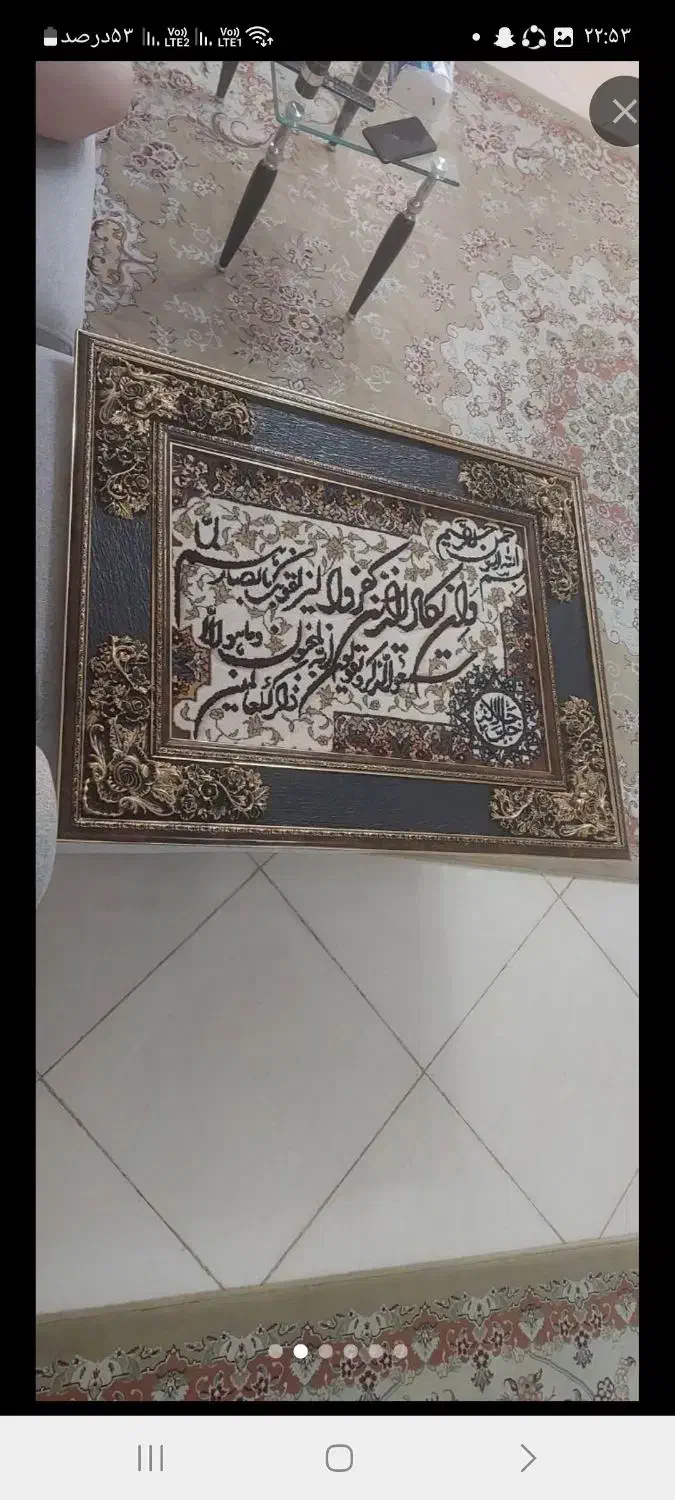 ۵۳درصد Vo)) LTE2 Vo)) LTE1 ۲۲:۵۳
بسم الله الرحمن الرحیم
وان یکاد الذین کفروا لیزلقونک بابصارهم لما
سمعوا الذکر و یقولون انه لمجنون وما هو الا
ذکر للعالمین
جل جلاله